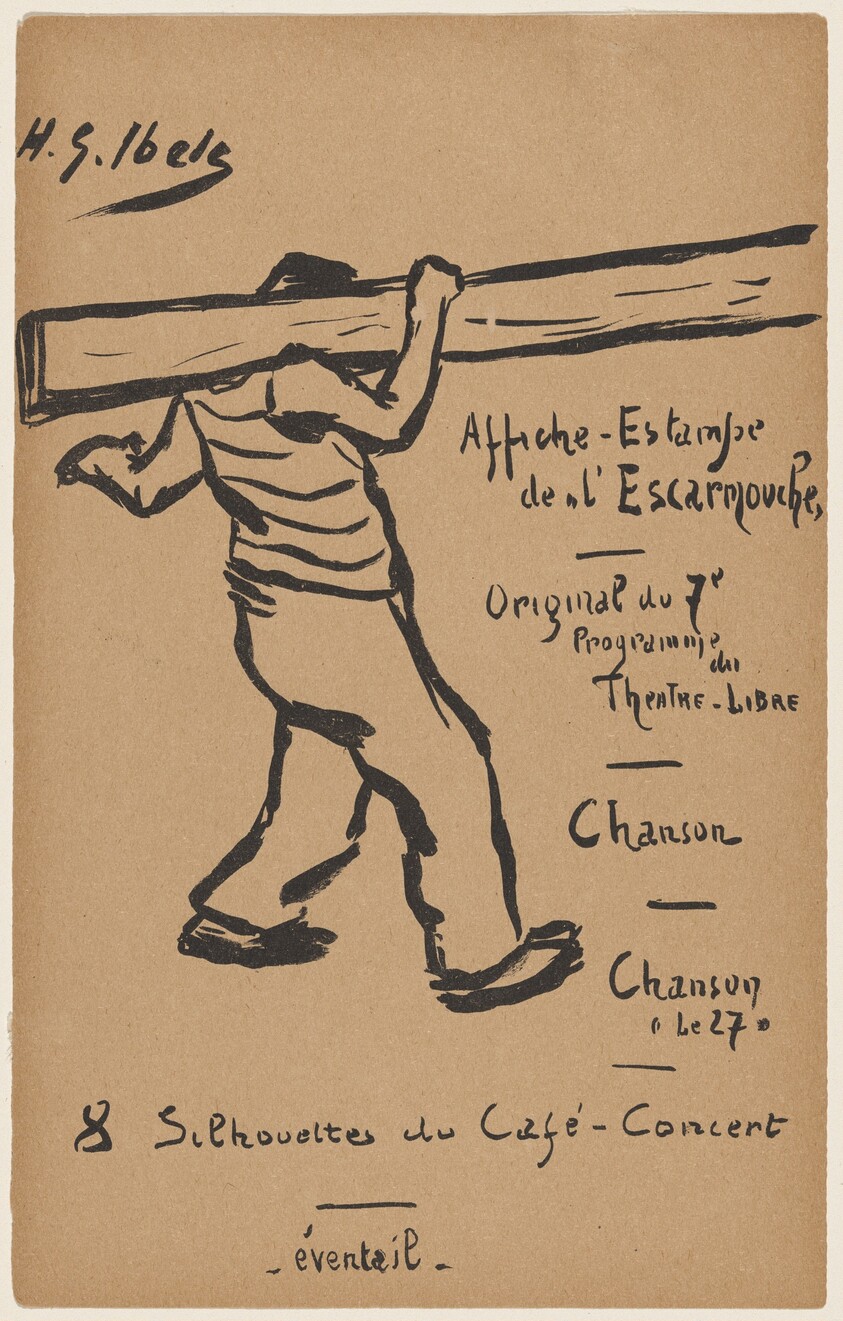 H. G. Ibels
Affiche-Estampe
de "l'Escarmouche,
Original du 7e
Programme
du
Theatre-Libre
Chanson
Chanson
" Le 27 "
8 Silhouettes du Café-Concert
- éventail -